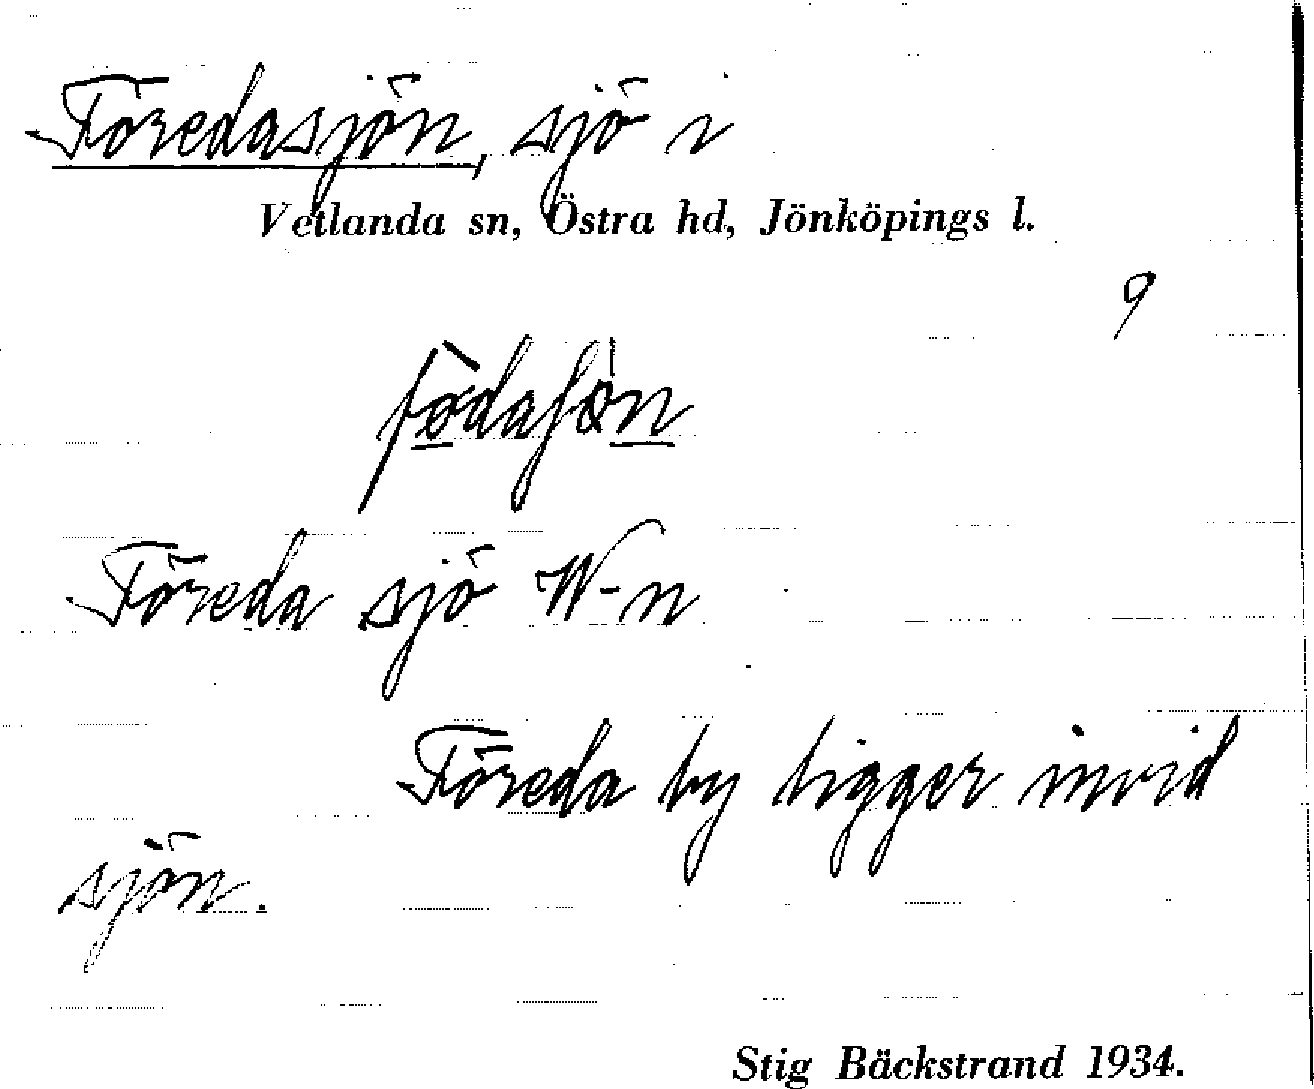 Föredasjön, sjö i
Vetlanda sn, Östra hd, Jönköpings l.
9
Föreda sjö W-n
Föreda by ligger invid
sjön.
Stig Bäckstrand 1934.